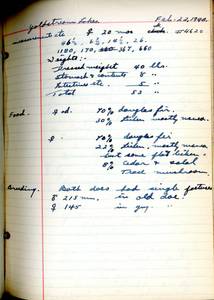 Goldstream Lakes Feb. 22, 1940.
measurements etc ♀ 20 mos #4620
46½, 6½, 14½, 26
1180, 170, 367, 660
Weights:-
Dressed weight 40 lbs.
Stomach & contents 8 "
Intestines etc. 5 "
Total 53 "
Food. ♀ ad. 70% douglas fir
30% lichen, mostly usnea.
♀ 70% douglas fir
22% lichen, mostly usnea
but some flat lichen.
8% cedar & salal
Trace mushroom.
Breeding. Both does had single foetuses
♀ 215 mm. in old doe.
♂ 145 in yg. "